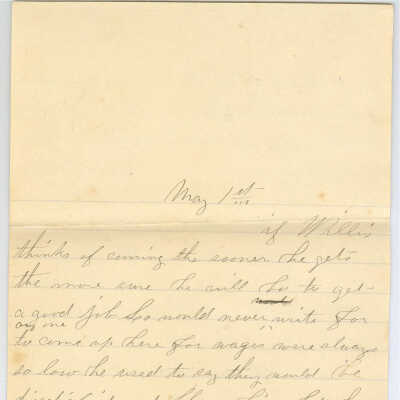 May 1st
if Willis
thinks of coming the sooner he gets
the more sure he will be to get
a good job Geo would never write for
any one
to come up here for wages were always
so low he used to say they would be